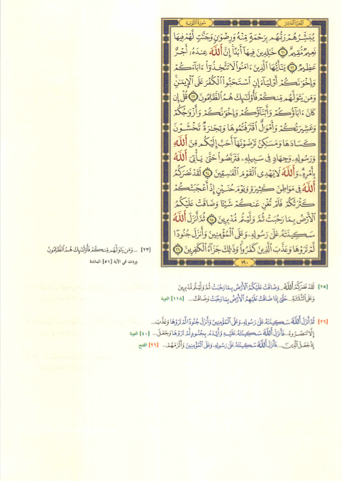 الجزء العاشر سورة التوبة
يُبَشِّرُهُمْ رَبُّهُم بِرَحْمَةٍ مِّنْهُ وَرِضْوَٰنٍ وَجَنَّٰتٍ لَّهُمْ فِيهَا
نَعِيمٌ مُّقِيمٌ ٢١ خَٰلِدِينَ فِيهَآ أَبَدًا إِنَّ ٱللَّهَ عِندَهُۥٓ أَجْرٌ
عَظِيمٌ ٢٢ يَٰٓأَيُّهَا ٱلَّذِينَ ءَامَنُوا۟ لَا تَتَّخِذُوٓا۟ ءَابَآءَكُمْ
وَإِخْوَٰنَكُمْ أَوْلِيَآءَ إِنِ ٱسْتَحَبُّوا۟ ٱلْكُفْرَ عَلَى ٱلْإِيمَٰنِ
وَمَن يَتَوَلَّهُم مِّنكُمْ فَأُو۟لَٰٓئِكَ هُمُ ٱلظَّٰلِمُونَ ٢٣ قُلْ إِن
كَانَ ءَابَآؤُكُمْ وَأَبْنَآؤُكُمْ وَإِخْوَٰنُكُمْ وَأَزْوَٰجُكُمْ
وَعَشِيرَتُكُمْ وَأَمْوَٰلٌ ٱقْتَرَفْتُمُوهَا وَتِجَٰرَةٌ تَخْشَوْنَ
كَسَادَهَا وَمَسَٰكِنُ تَرْضَوْنَهَآ أَحَبَّ إِلَيْكُم مِّنَ ٱللَّهِ
وَرَسُولِهِۦ وَجِهَادٍ فِى سَبِيلِهِۦ فَتَرَبَّصُوا۟ حَتَّىٰ يَأْتِىَ ٱللَّهُ
بِأَمْرِهِۦ وَٱللَّهُ لَا يَهْدِى ٱلْقَوْمَ ٱلْفَٰسِقِينَ ٢٤ لَقَدْ نَصَرَكُمُ
ٱللَّهُ فِى مَوَاطِنَ كَثِيرَةٍ وَيَوْمَ حُنَيْنٍ إِذْ أَعْجَبَتْكُمْ
كَثْرَتُكُمْ فَلَمْ تُغْنِ عَنكُمْ شَيْـًٔا وَضَاقَتْ عَلَيْكُمُ
ٱلْأَرْضُ بِمَا رَحُبَتْ ثُمَّ وَلَّيْتُم مُّدْبِرِينَ ٢٥ ثُمَّ أَنزَلَ ٱللَّهُ
سَكِينَتَهُۥ عَلَىٰ رَسُولِهِۦ وَعَلَى ٱلْمُؤْمِنِينَ وَأَنزَلَ جُنُودًا
لَّمْ تَرَوْهَا وَعَذَّبَ ٱلَّذِينَ كَفَرُوا۟ وَذَٰلِكَ جَزَآءُ ٱلْكَٰفِرِينَ ٢٦
١٩٠
[٢٣] ...وَمَن يَتَوَلَّهُم مِّنكُمْ فَأُو۟لَٰٓئِكَ هُمُ ٱلظَّٰلِمُونَ
وردت في الآية [٥١] المائدة
[٢٥] لَقَدْ نَصَرَكُمُ ٱللَّهُ...وَضَاقَتْ عَلَيْكُمُ ٱلْأَرْضُ بِمَا رَحُبَتْ ثُمَّ وَلَّيْتُم مُّدْبِرِينَ
وَعَلَى ٱلثَّلَٰثَةِ...حَتَّىٰٓ إِذَا ضَاقَتْ عَلَيْهِمُ ٱلْأَرْضُ بِمَا رَحُبَتْ وَضَاقَتْ... [١١٨] التوبة
[٢٦] ثُمَّ أَنزَلَ ٱللَّهُ سَكِينَتَهُۥ عَلَىٰ رَسُولِهِۦ وَعَلَى ٱلْمُؤْمِنِينَ وَأَنزَلَ جُنُودًا لَّمْ تَرَوْهَا وَعَذَّبَ...
إِلَّا تَنصُرُوهُ...فَأَنزَلَ ٱللَّهُ سَكِينَتَهُۥ عَلَيْهِ وَأَيَّدَهُۥ بِجُنُودٍ لَّمْ تَرَوْهَا وَجَعَلَ... [٤٠] التوبة
إِذْ جَعَلَ ٱلَّذِينَ...فَأَنزَلَ ٱللَّهُ سَكِينَتَهُۥ عَلَىٰ رَسُولِهِۦ وَعَلَى ٱلْمُؤْمِنِينَ وَأَلْزَمَهُمْ... [٢٦] الفتح